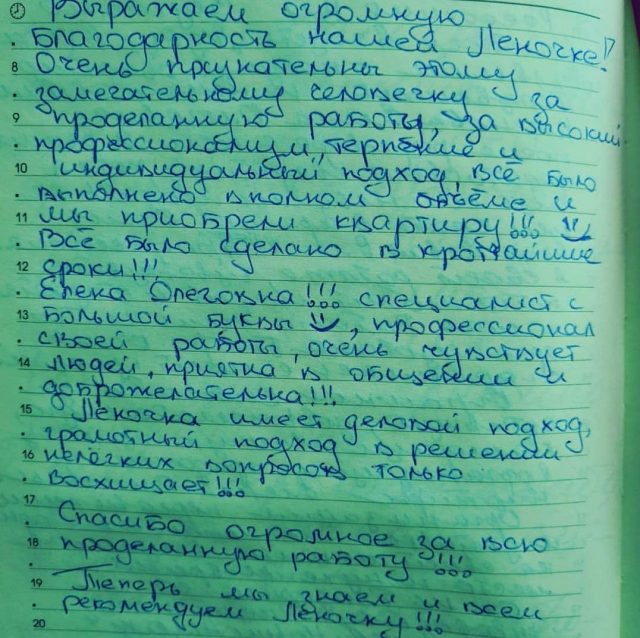 Выражаем огромную
благодарность нашей Леночке!
8 Очень признательны этому
замечательному человечку за
9 проделанную работу, за высокий
профессионализм, терпение и
10 индивидуальный подход, всё было
выполнено в полном объёме и
11 мы приобрели квартиру!!!
Всё было сделано в кротчайшие
12 сроки!!!
Елена Олеговна!!! специалист с
13 большой буквы, профессионал
своей работы, очень чувствует
14 людей, приятна в общении и
доброжелательна!!!
15 Леночка имеет деловой подход,
грамотный подход в решении
16 нелёгких вопросов только
восхищает!!!
17
Спасибо огромное за всю
18 проделанную работу!!!
19 Теперь мы знаем и всем
рекомендуем Леночку!!!
20